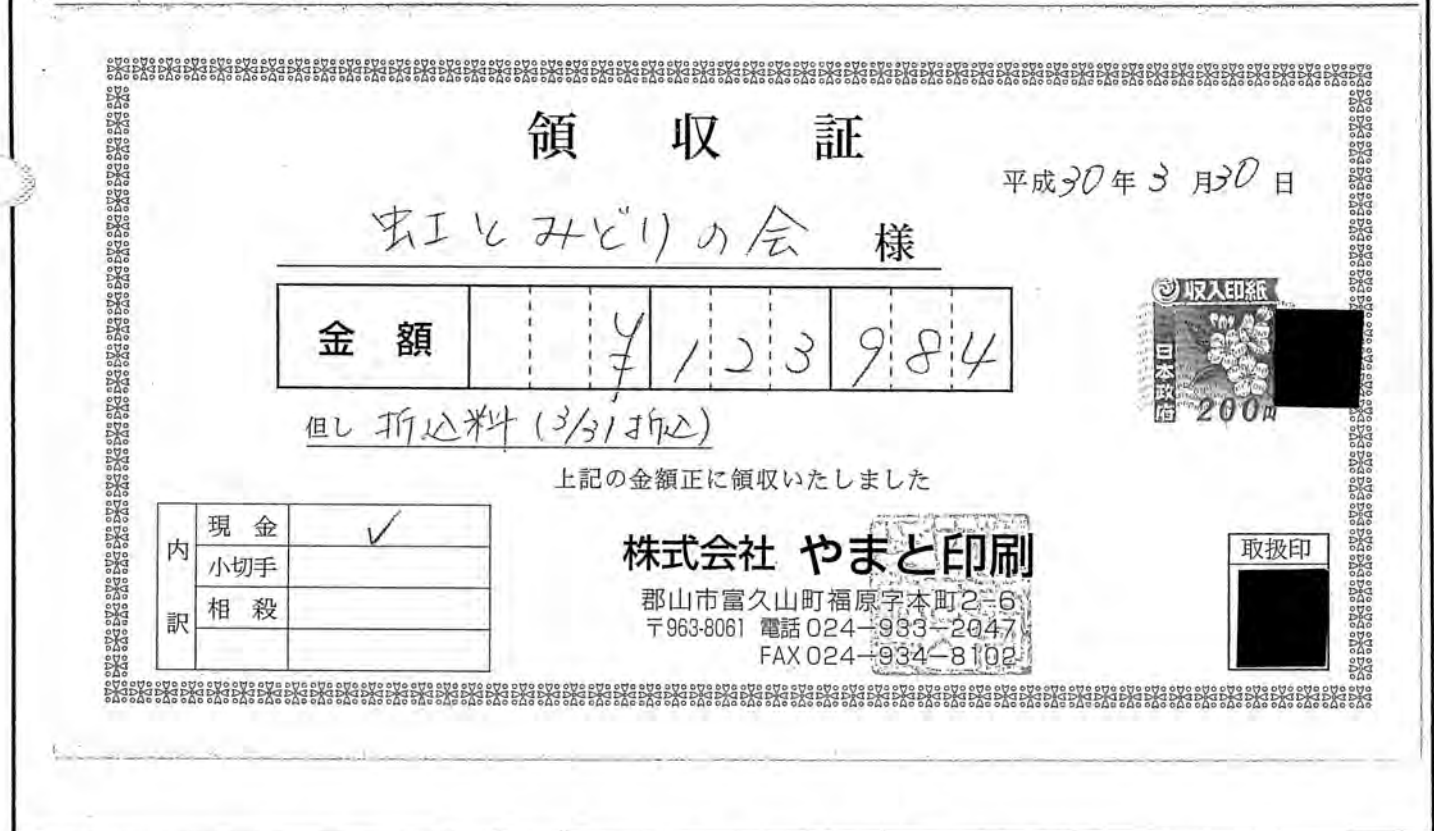 領収証
平成30年3月30日
虹とみどりの会 様
金額 ¥123984
収入印紙
日本政府
200円
但し 折込料 (3/31折込)
上記の金額正に領収いたしました
内訳
現金 ✓
小切手
相殺
株式会社 やまと印刷
郡山市富久山町福原字本町2-6
〒963-8061 電話024-933-2047
FAX 024-934-8102
取扱印